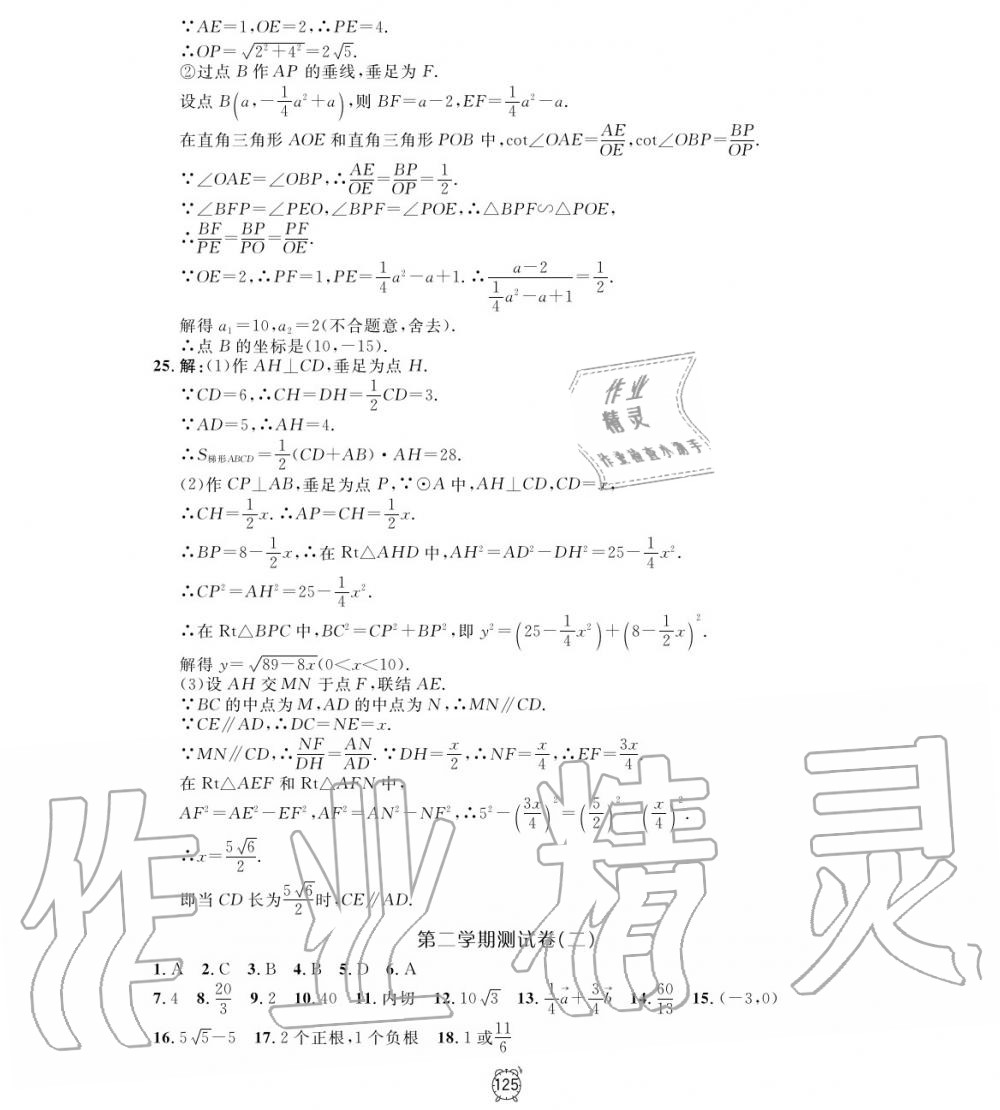 ∵AE=1,OE=2,∴PE=4.
∴OP=√(2²+4²)=2√5.
②过点 B 作 AP 的垂线,垂足为 F.
设点 B(a,-1/4a²+a),则 BF=a-2,EF=1/4a²-a.
在直角三角形 AOE 和直角三角形 POB 中,cot∠OAE=AE/OE,cot∠OBP=BP/OP.
∵∠OAE=∠OBP,∴AE/OE=BP/OP=1/2.
∵∠BFP=∠PEO,∠BPF=∠POE,∴△BPF∽△POE,
∴BF/PE=BP/PO=PF/OE.
∵OE=2,∴PF=1,PE=1/4a²-a+1.∴(a-2)/(1/4a²-a+1)=1/2.
解得 a₁=10,a₂=2(不合题意,舍去).
∴点 B 的坐标是(10,-15).
25.解:(1)作 AH⊥CD,垂足为点 H.
∵CD=6,∴CH=DH=1/2CD=3.
∵AD=5,∴AH=4.
∴S梯形ABCD=1/2(CD+AB)·AH=28.
(2)作 CP⊥AB,垂足为点 P,∵⊙A 中,AH⊥CD,CD=x,
∴CH=1/2x.∴AP=CH=1/2x.
∴BP=8-1/2x,∴在 Rt△AHD 中,AH²=AD²-DH²=25-1/4x².
∴CP²=AH²=25-1/4x².
∴在 Rt△BPC 中,BC²=CP²+BP²,即 y²=(25-1/4x²)+(8-1/2x)².
解得 y=√(89-8x)(0<x<10).
(3)设 AH 交 MN 于点 F,联结 AE.
∵BC 的中点为 M,AD 的中点为 N,∴MN∥CD.
∵CE∥AD,∴DC=NE=x.
∵MN∥CD,∴NF/DH=AN/AD.∵DH=x/2,∴NF=x/4,∴EF=3x/4.
在 Rt△AEF 和 Rt△AFN 中,
AF²=AE²-EF²,AF²=AN²-NF²,∴5²-(3x/4)²=(5/2)²-(x/4)².
∴x=5√6/2.
即当 CD 长为5√6/2时,CE∥AD.
第二学期测试卷(二)
1.A 2.C 3.B 4.B 5.D 6.A
7.4 8.20/3 9.2 10.40 11.内切 12.10√3 13.1/4a⃗+3/4b⃗ 14.60/13 15.(-3,0)
16.5√5-5 17.2 个正根,1 个负根 18.1 或11/6
125
作业
精灵
作业检查小助手
作业精灵